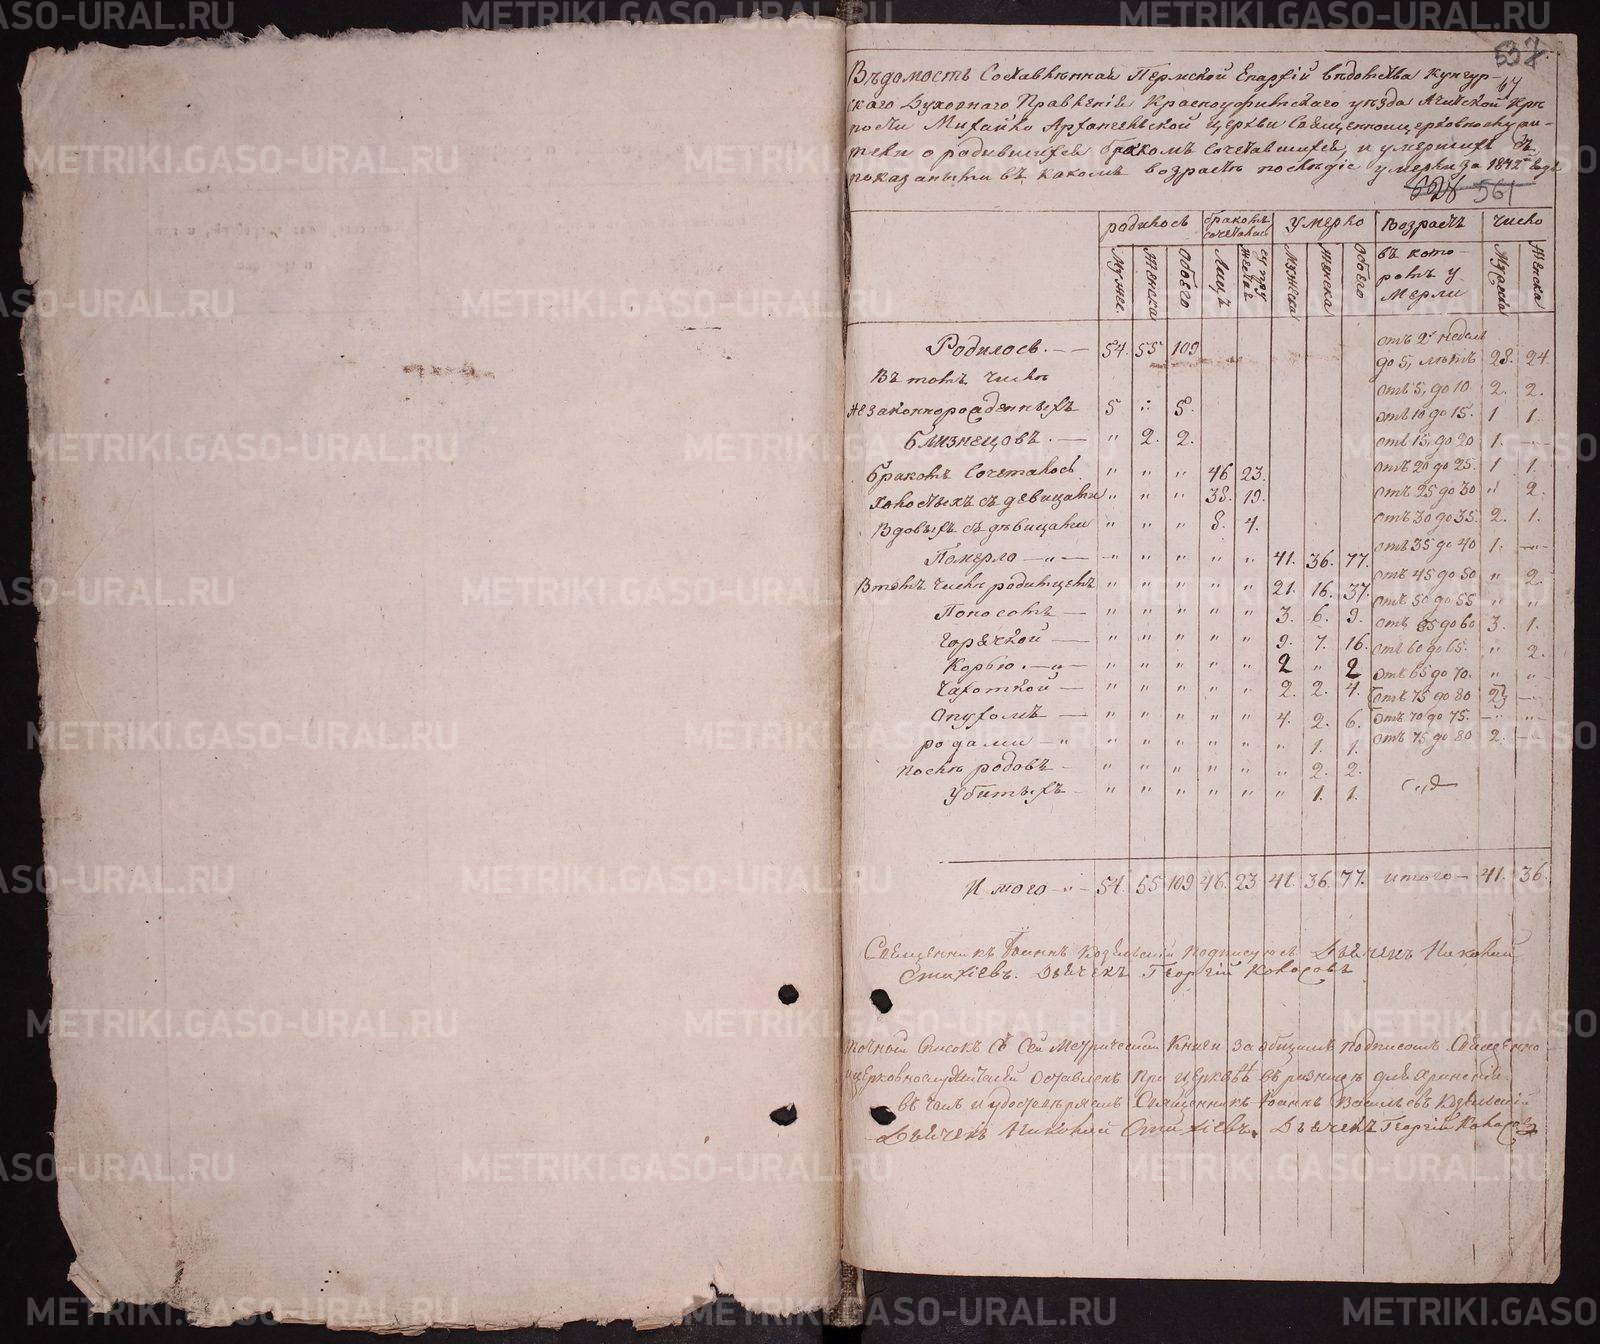 537.
64
Вѣдомость Составленная Пермской Епархіи вѣдомства Кунгур-
скаго Духовнаго Правленія Красноуфимскаго уѣзда Ачитской Крѣ
пости Михайло Архангельской церкви Священноцерковнослужи-
тели о родившихся бракомъ сочетавшихся и умершихъ съ
показаніемъ въ какомъ возрастѣ послѣдніе умерли за 1842й годъ
561
родилось браковъ сочеталось умерло Возрастъ число
Мужес. Женска Обоего Лицъ супружествъ Мужеска Женска Обоего въ кото-ромъ умерли Мужеска Женска
Родилось. — 54. 55 109 отъ 2х недель до 5, лѣтъ 28. 24
Въ томъ числѣ отъ 5, до 10 2. 2.
Незаконнорожденныхъ 5 " 5. отъ 10 до 15. 1 1.
Близнецовъ. — " 2. 2. отъ 15, до 20 1. —
Браковъ Сочеталось " " " 46 23. отъ 20 до 25. 1 1.
Холостыхъ съ девицами " " " 38. 19. отъ 25 до 30 " 2.
Вдовыхъ съ дѣвицами " " " 8. 4. отъ 30 до 35. 2. 1.
Померло — " — " " " " " 41. 36. 77. отъ 35 до 40 1. —
Втомъ числѣ родимцемъ " " " " " 21. 16. 37. отъ 45 до 50 " 2.
отъ 50 до 55 " "
Поносомъ — " " " " " 3. 6. 9. отъ 55 до 60 3. 1.
Горячкой — " " " " " 9. 7. 16. отъ 60 до 65. " 2.
Корью. — " — " " " " " 2 " 2 отъ 65 до 70. " "
Чахоткой — " " " " " 2. 2. 4. отъ 75 до 80 2 —
Опухомъ — " " " " " 4. 2. 6. отъ 70 до 75. — " — "
родами — " " " " " " " 1. 1. отъ 75 до 80 2. —
послѣ родовъ — " " " " " " 2. 2.
Убитыхъ — " " " " " " 1. 1.
Итого — " — 54. 55 109 46. 23 41. 36. 77. итого — 41. 36.
Священникъ Іоаннъ Козельскій подписуюсь Дьячекъ Николай
Стахіевъ. Дьячекъ Георгій Колосовъ
точной списокъ съ сей Метрической Книги за общимъ подписомъ Священно
и церковнослужителей оставленъ при церквѣ въ ризницѣ для храненія
въ чемъ и удостовѣряемъ Священникъ Іоаннъ Васильевъ Козельскій
Дьячекъ Николай Стахіевъ. Дьячекъ Георгій Колосовъ
METRIKI.GASO-URAL.RU